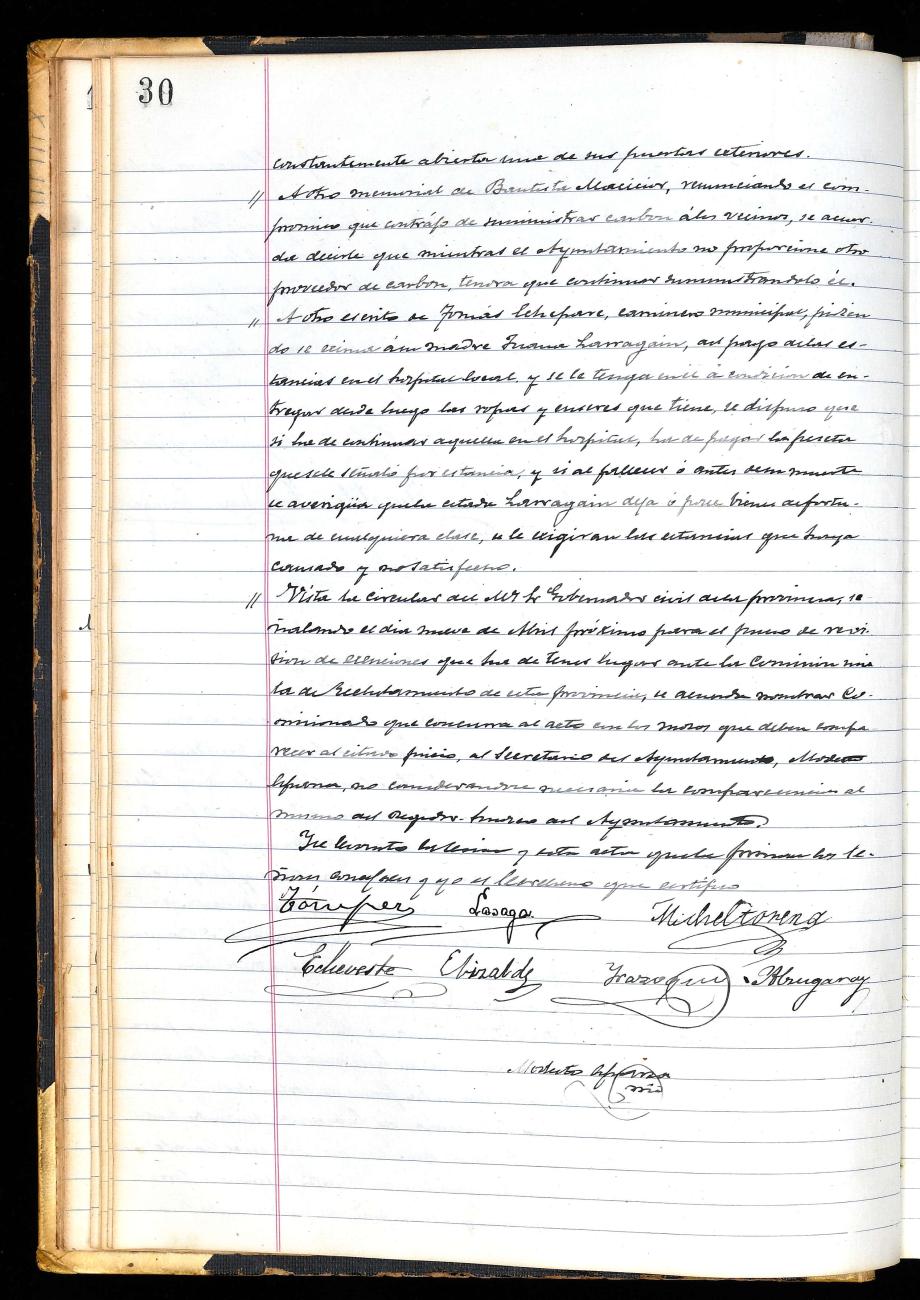 30
constantemente abierta una de sus puertas exteriores.
// A otro memorial de Bautista Maicior, renunciando el com-
promiso que contrajo de suministrar carbon á los vecinos, se acuer-
da decirle que mientras el Ayuntamiento no proporcione otro
proveedor de carbon, tendra que continuar suministrandolo él.
// A otro escrito de Tomás Echepare, caminero municipal, pidien
do se exima á su madre Juana Larragain, del pago de las es-
tancias en el hospital local y se la tenga en él á condicion de en-
tregar desde luego las ropas y enseres que tiene, se dispuso que
si ha de continuar aquella en el hospital, ha de pagar la peseta
que se le señaló por estancia, y si al fallecer ó antes de su muerte
se averigüa que la citada Larragain deja ó posee bienes de fortu-
na de cualquiera clase, se le exigiran las estancias que haya
causado y no satisfecho.
// Vista la circular del M. I. Sr. Gobernador civil de la provincia, se-
ñalando el dia nueve de Abril próximo para el juicio de revi-
sion de exenciones que ha de tener lugar ante la Comision mix
ta de Reclutamiento de esta provincia, se acuerda nombrar Co-
misionado que concurra al acto con los mozos que deben compa-
recer al citado juicio, al Secretario del Ayuntamiento, Modesto
no considerandose necesaria la comparecencia al
mismo del Regidor Sindico del Ayuntamiento.
Se levantó la sesion y esta acta que la firman los Se-
ñores concejales y yo el Secretario que certifico
Lasaga Micheltorena
Echeveste Elizalde Irazoqui Abrugaray
Modesto